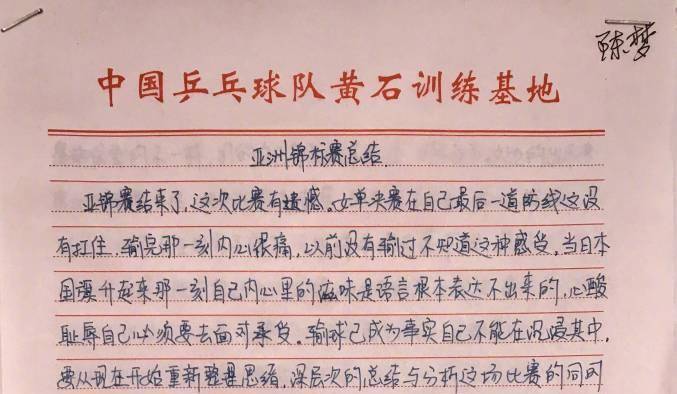 陈梦
中国乒乓球队黄石训练基地
亚洲锦标赛总结.
亚锦赛结束了,这次比赛有遗憾。女单决赛在自己最后一道防线这没
有扛住,输完那一刻内心很痛,以前没有输过不知道这种感受,当日本
国旗升起来那一刻自己内心里的滋味是语言根本表达不出来的,心酸
耻辱自己必须要去面对承受。输球已成为事实自己不能在沉浸其中,
要从现在开始重新整理思绪,深层次的总结与分析这场比赛的同时